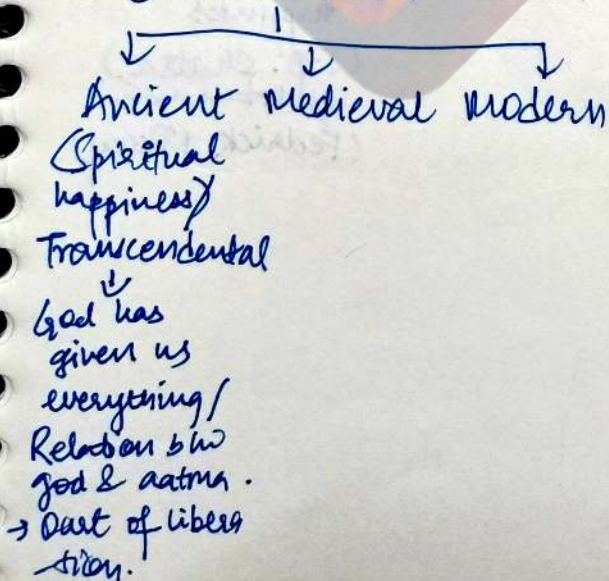 Ancient Medieval Modern
(Spiritual
happiness)
Transcendental
God has
given us
everything/
Relation b/w
god & aatma.
→ Part of libera
tion.